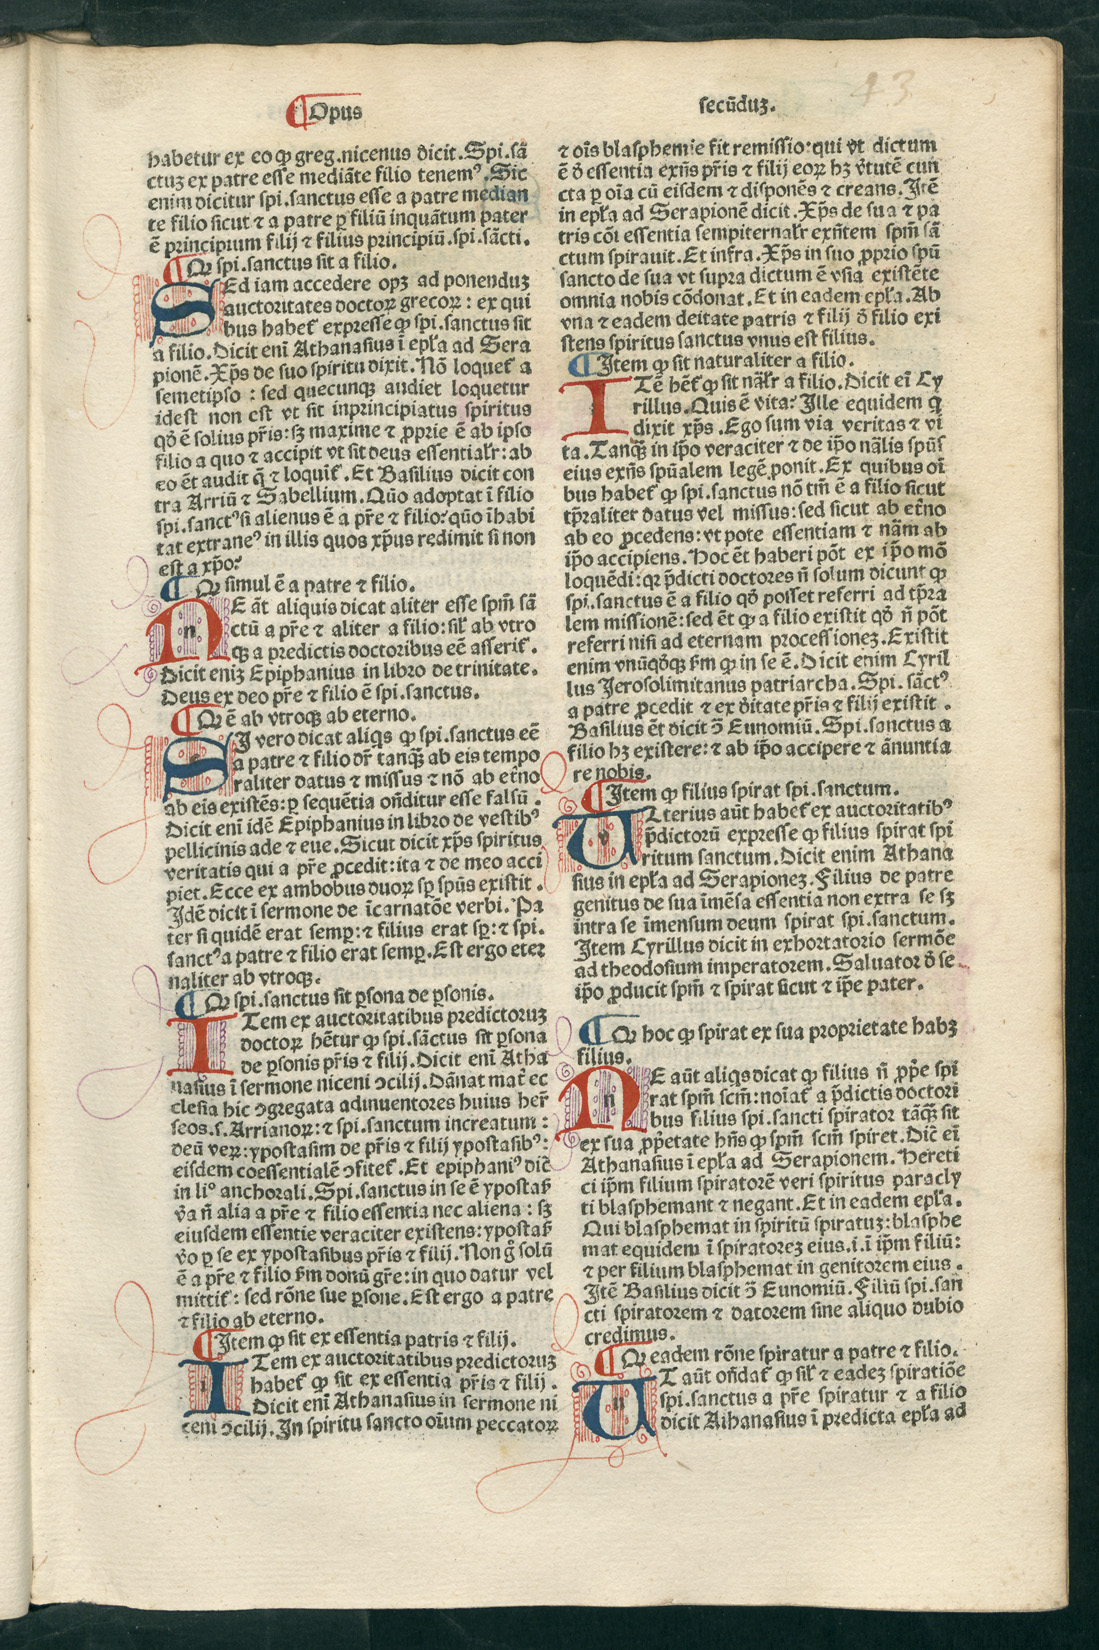 ¶Opus
secūduꝫ.
43
habetur ex eo ꝙ greg.nicenus dicit.Spi.sā
ctuꝫ ex patre esse mediāte filio tenemꝰ.Sic
enim dicitur spi.sanctus esse a patre median
te filio sicut ⁊ a patre ꝑ filiū inquātum pater
ē principium filij ⁊ filius principiū.spi.sācti.
¶Qꝛ spi.sanctus sit a filio.
SEd iam accedere opꝫ ad ponenduꝫ
auctoritates doctoꝝ grecoꝝ: ex qui
bus habet᷑ expresse ꝙ spi.sanctus sit
a filio.Dicit eni Athanasius ī epl̄a ad Sera
pionē.Xp̄s de suo spiritu dixit.Nō loquet᷑ a
semetipso : sed quecunqꝫ audiet loquetur
idest non est vt sit inprincipiatus spiritus
qd̄ ē solius pr̄is:sꝫ maxime ⁊ ꝓprie ē ab ipso
filio a quo ⁊ accipit vt sit deus essentialr̄: ab
eo ēt audit q̄ ⁊ loquit᷑.Et Basilius dicit con
tra Arriū ⁊ Sabellium.Quō adoptat ī filio
spi.sanctꝰ si alienus ē a pr̄e ⁊ filio:quō īhabi
tat extraneꝰ in illis quos xp̄us redimit si non
est a xp̄o?
¶Qꝛ simul ē a patre ⁊ filio.
NE āt aliquis dicat aliter esse spm̄ sā
ctū a pr̄e ⁊ aliter a filio:sil̄ ab vtro
qꝫ a predictis doctoribus eē asserit᷑.
Dicit eniꝫ Epiphanius in libro de trinitate.
Deus ex deo pr̄e ⁊ filio ē spi.sanctus.
¶Qꝛ ē ab vtroqꝫ ab eterno.
SI vero dicat aliqs ꝙ spi.sanctus eē
a patre ⁊ filio dr̄ tanqꝫ ab eis tempo
raliter datus ⁊ missus ⁊ nō ab et̄no
ab eis existēs:ꝑ sequētia on̄ditur esse falsū.
Dicit eni idē Epiphanius in libro de vestibꝰ
pellicinis ade ⁊ eue.Sicut dicit xp̄s spiritus
veritatis qui a pr̄e ꝓcedit:ita ⁊ de meo acci
piet.Ecce ex ambobus duoꝝ sp̄ sp̄us existit.
Idē dicit ī sermone de īcarnatōe verbi.Pa
ter si quidē erat semꝑ:⁊ filius erat sꝑ:⁊ spi.
sanctꝰ a patre ⁊ filio erat semꝑ.Est ergo eter
naliter ab vtroqꝫ.
¶Qꝛ spi.sanctus sit ꝑsona de ꝑsonis.
ITem ex auctoritatibus predictoruꝫ
doctoꝝ hētur ꝙ spi.sāctus sit ꝑsona
de ꝑsonis pr̄is ⁊ filij.Dicit eni Atha
nasius ī sermone niceni ↄcilij.Dānat mat̄ ec
clesia hic ↄgregata adinuentores huius her̄
seos.s.Arrianoꝝ:⁊ spi.sanctum increatum:
deū veꝝ:ypostasim de pr̄is ⁊ filij ypostasibꝰ:
eisdem coessentialē ↄfitet᷑.Et epiphaniꝰ dic̄
in liº anchorali.Spi.sanctus in se ē ypostas̄
v̄a n̄ alia a pr̄e ⁊ filio essentia nec aliena : sꝫ
eiusdem essentie veraciter existens:ypostas̄
v̄o ꝑ se ex ypostasibus pr̄is ⁊ filij.Non g̊ solū
ē a pr̄e ⁊ filio s̄m donū gr̄e:in quo datur vel
mittit᷑: sed rōne sue ꝑsone.Est ergo a patre
⁊ filio ab eterno.
¶Item ꝙ sit ex essentia patris ⁊ filij.
ITem ex auctoritatibus predictoruꝫ
habet᷑ ꝙ sit ex essentia pr̄is ⁊ filij.
Dicit eni Athanasius in sermone ni
ceni ↄcilij.In spiritu sancto oīum peccatoꝝ
⁊ oīs blasphemie fit remissio:qui vt dictum
ē d̄ essentia exn̄s pr̄is ⁊ filij eoꝝ hꝫ v̄tutē cun
cta ꝑ oīa cū eisdem ⁊ disponēs ⁊ creans.Itē
in epl̄a ad Serapionē dicit.Xp̄s de sua ⁊ pa
tris cōi essentia sempiternalr̄ exn̄tem spm̄ sā
ctum spirauit.Et infra.Xp̄s in suo ꝓprio spū
sancto de sua vt supra dictum ē vsia existēte
omnia nobis cōdonat.Et in eadem epl̄a.Ab
vna ⁊ eadem deitate patris ⁊ filij d̄ filio exi
stens spiritus sanctus vnus est filius.
¶Item ꝙ sit naturaliter a filio.
ITē hēt᷑ ꝙ sit nāl̄r a filio.Dicit ei Cy
rillus.Quis ē vita? Ille equidem q
dixit xp̄s.Ego sum via veritas ⁊ vi
ta.Tanqꝫ in ip̄o veraciter ⁊ de ip̄o nālis spūs
eius exn̄s spūalem legē ponit.Ex quibus oī
bus habet᷑ ꝙ spi.sanctus nō tm̄ ē a filio sicut
tp̄raliter datus vel missus:sed sicut ab et̄no
ab eo ꝓcedens:vt pote essentiam ⁊ nām ab
ip̄o accipiens.Hoc ēt haberi pōt ex ip̄o mō
loquēdi:qꝛ p̄dicti doctores n̄ solum dicunt ꝙ
spi.sanctus ē a filio qd̄ posset referri ad tp̄ra
lem missionē:sed ēt ꝙ a filio existit qd̄ n̄ pōt
referri nisi ad eternam processioneꝫ.Existit
enim vnūqd̄qꝫ s̄m ꝙ in se ē.Dicit enim Cyril
lus Jerosolimitanus patriarcha.Spi.sāctꝰ
a patre ꝓcedit ⁊ ex d̄itate pr̄is ⁊ filij existit.
Basilius ēt dicit ↄ̄ Eunomiū.Spi.sanctus a
filio hꝫ existere:⁊ ab ip̄o accipere ⁊ ānuntia
re nobis.
¶Item ꝙ filius spirat spi.sanctum.
ULterius aūt habet᷑ ex auctoritatibꝰ
p̄dictorū expresse ꝙ filius spirat spi
ritum sanctum.Dicit enim Athana
sius in epl̄a ad Serapioneꝫ.Filius de patre
genitus de sua īmēsa essentia non extra se sꝫ
intra se īmensum deum spirat spi.sanctum.
Item Cyrillus dicit in exhortatorio sermōe
ad theodosium imperatorem.Saluator d̄ se
ip̄o ꝓducit spm̄ ⁊ spirat sicut ⁊ ip̄e pater.
¶Qꝛ hoc ꝙ spirat ex sua proprietate habꝫ
filius.
NE aūt aliqs dicat ꝙ filius n̄ prop̄e spi
rat spm̄ scm̄:noīat᷑ a p̄dictis doctori
bus filius spi.sancti spirator tāqꝫ sit
ex sua pp̄etate hn̄s ꝙ spm̄ scm̄ spiret.Dic̄ ei
Athanasius ī epl̄a ad Serapionem.Hereti
ci ip̄m filium spiratorē veri spiritus paracly
ti blasphemant ⁊ negant.Et in eadem epl̄a.
Qui blasphemat in spiritū spiratuꝫ:blasphe
mat equidem ī spiratoreꝫ eius.i.ī ip̄m filiū:
⁊ per filium blasphemat in genitorem eius.
Itē Basilius dicit ↄ̄ Eunomiū.Filiū spi.san
cti spiratorem ⁊ datorem sine aliquo dubio
credimus.
¶Qꝛ eadem rōne spiratur a patre ⁊ filio.
UT aūt on̄dat᷑ ꝙ sil̄ ⁊ eadeꝫ spiratiōe
spi.sanctus a pr̄e spiratur ⁊ a filio
dicit Athanasius ī predicta epl̄a ad